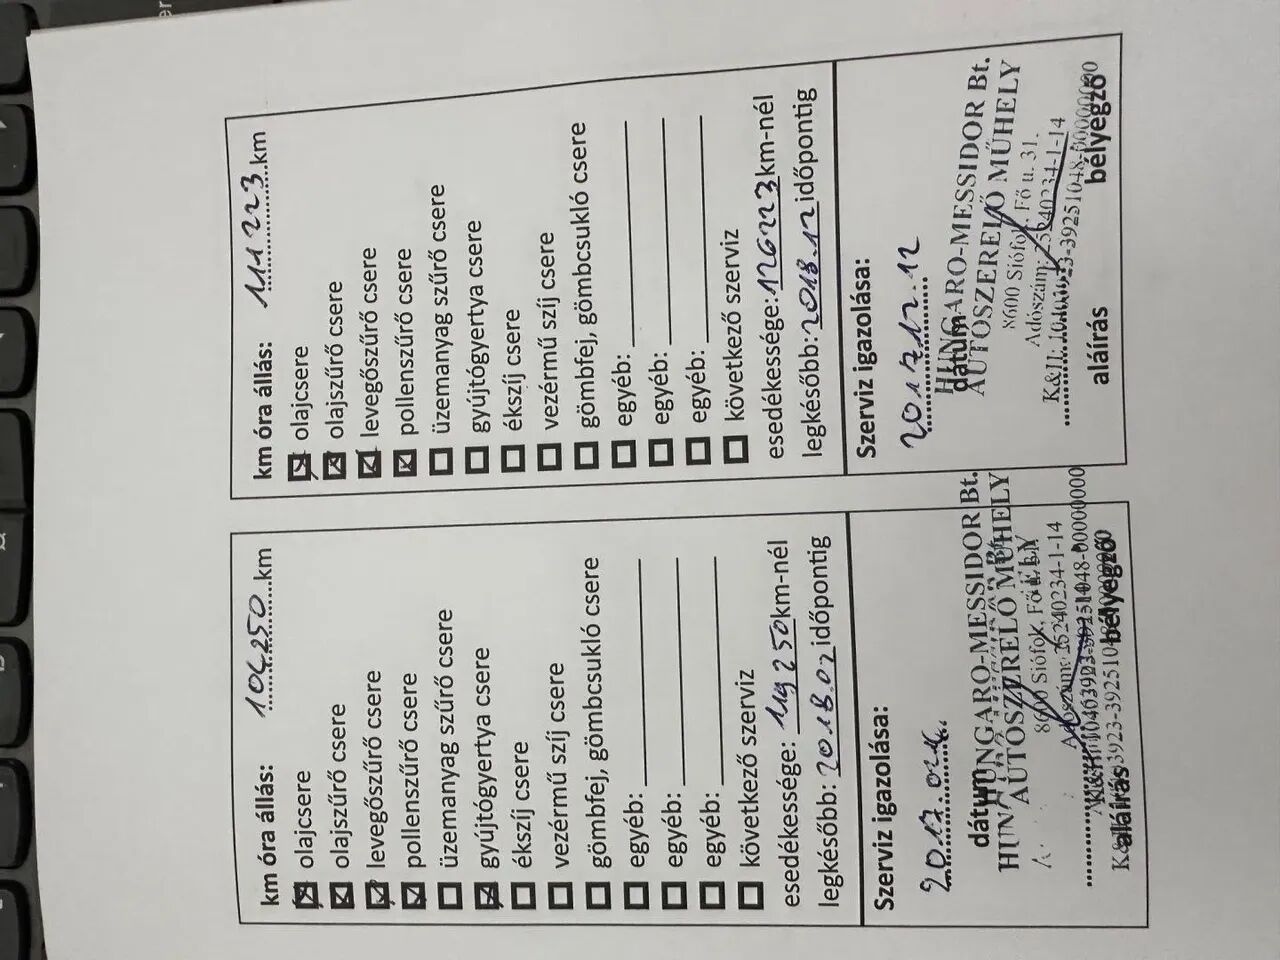 km óra állás: 104250 km
olajcsere
olajszűrő csere
levegőszűrő csere
pollenszűrő csere
üzemanyag szűrő csere
gyújtógyertya csere
ékszíj csere
vezérmű szíj csere
gömbfej, gömbcsukló csere
egyéb:
egyéb:
egyéb:
következő szerviz
esedékessége: 119250 km-nél
legkésőbb: 2018.02 időpontig
Szerviz igazolása:
dátum
HUNGARO-MESSIDOR Bt.
AUTOSZERELŐ MŰHELY
8600 Siófok, Fő u.
aláírás
bélyegző
km óra állás: 111223 km
olajcsere
olajszűrő csere
levegőszűrő csere
pollenszűrő csere
üzemanyag szűrő csere
gyújtógyertya csere
ékszíj csere
vezérmű szíj csere
gömbfej, gömbcsukló csere
egyéb:
egyéb:
egyéb:
következő szerviz
esedékessége: 126223 km-nél
legkésőbb: 2018.12 időpontig
Szerviz igazolása:
2017.12.12
dátum
HUNGARO-MESSIDOR Bt.
AUTOSZERELŐ MŰHELY
8600 Siófok, Fő u. 31.
Adószám: 25240234-1-14
aláírás
bélyegző